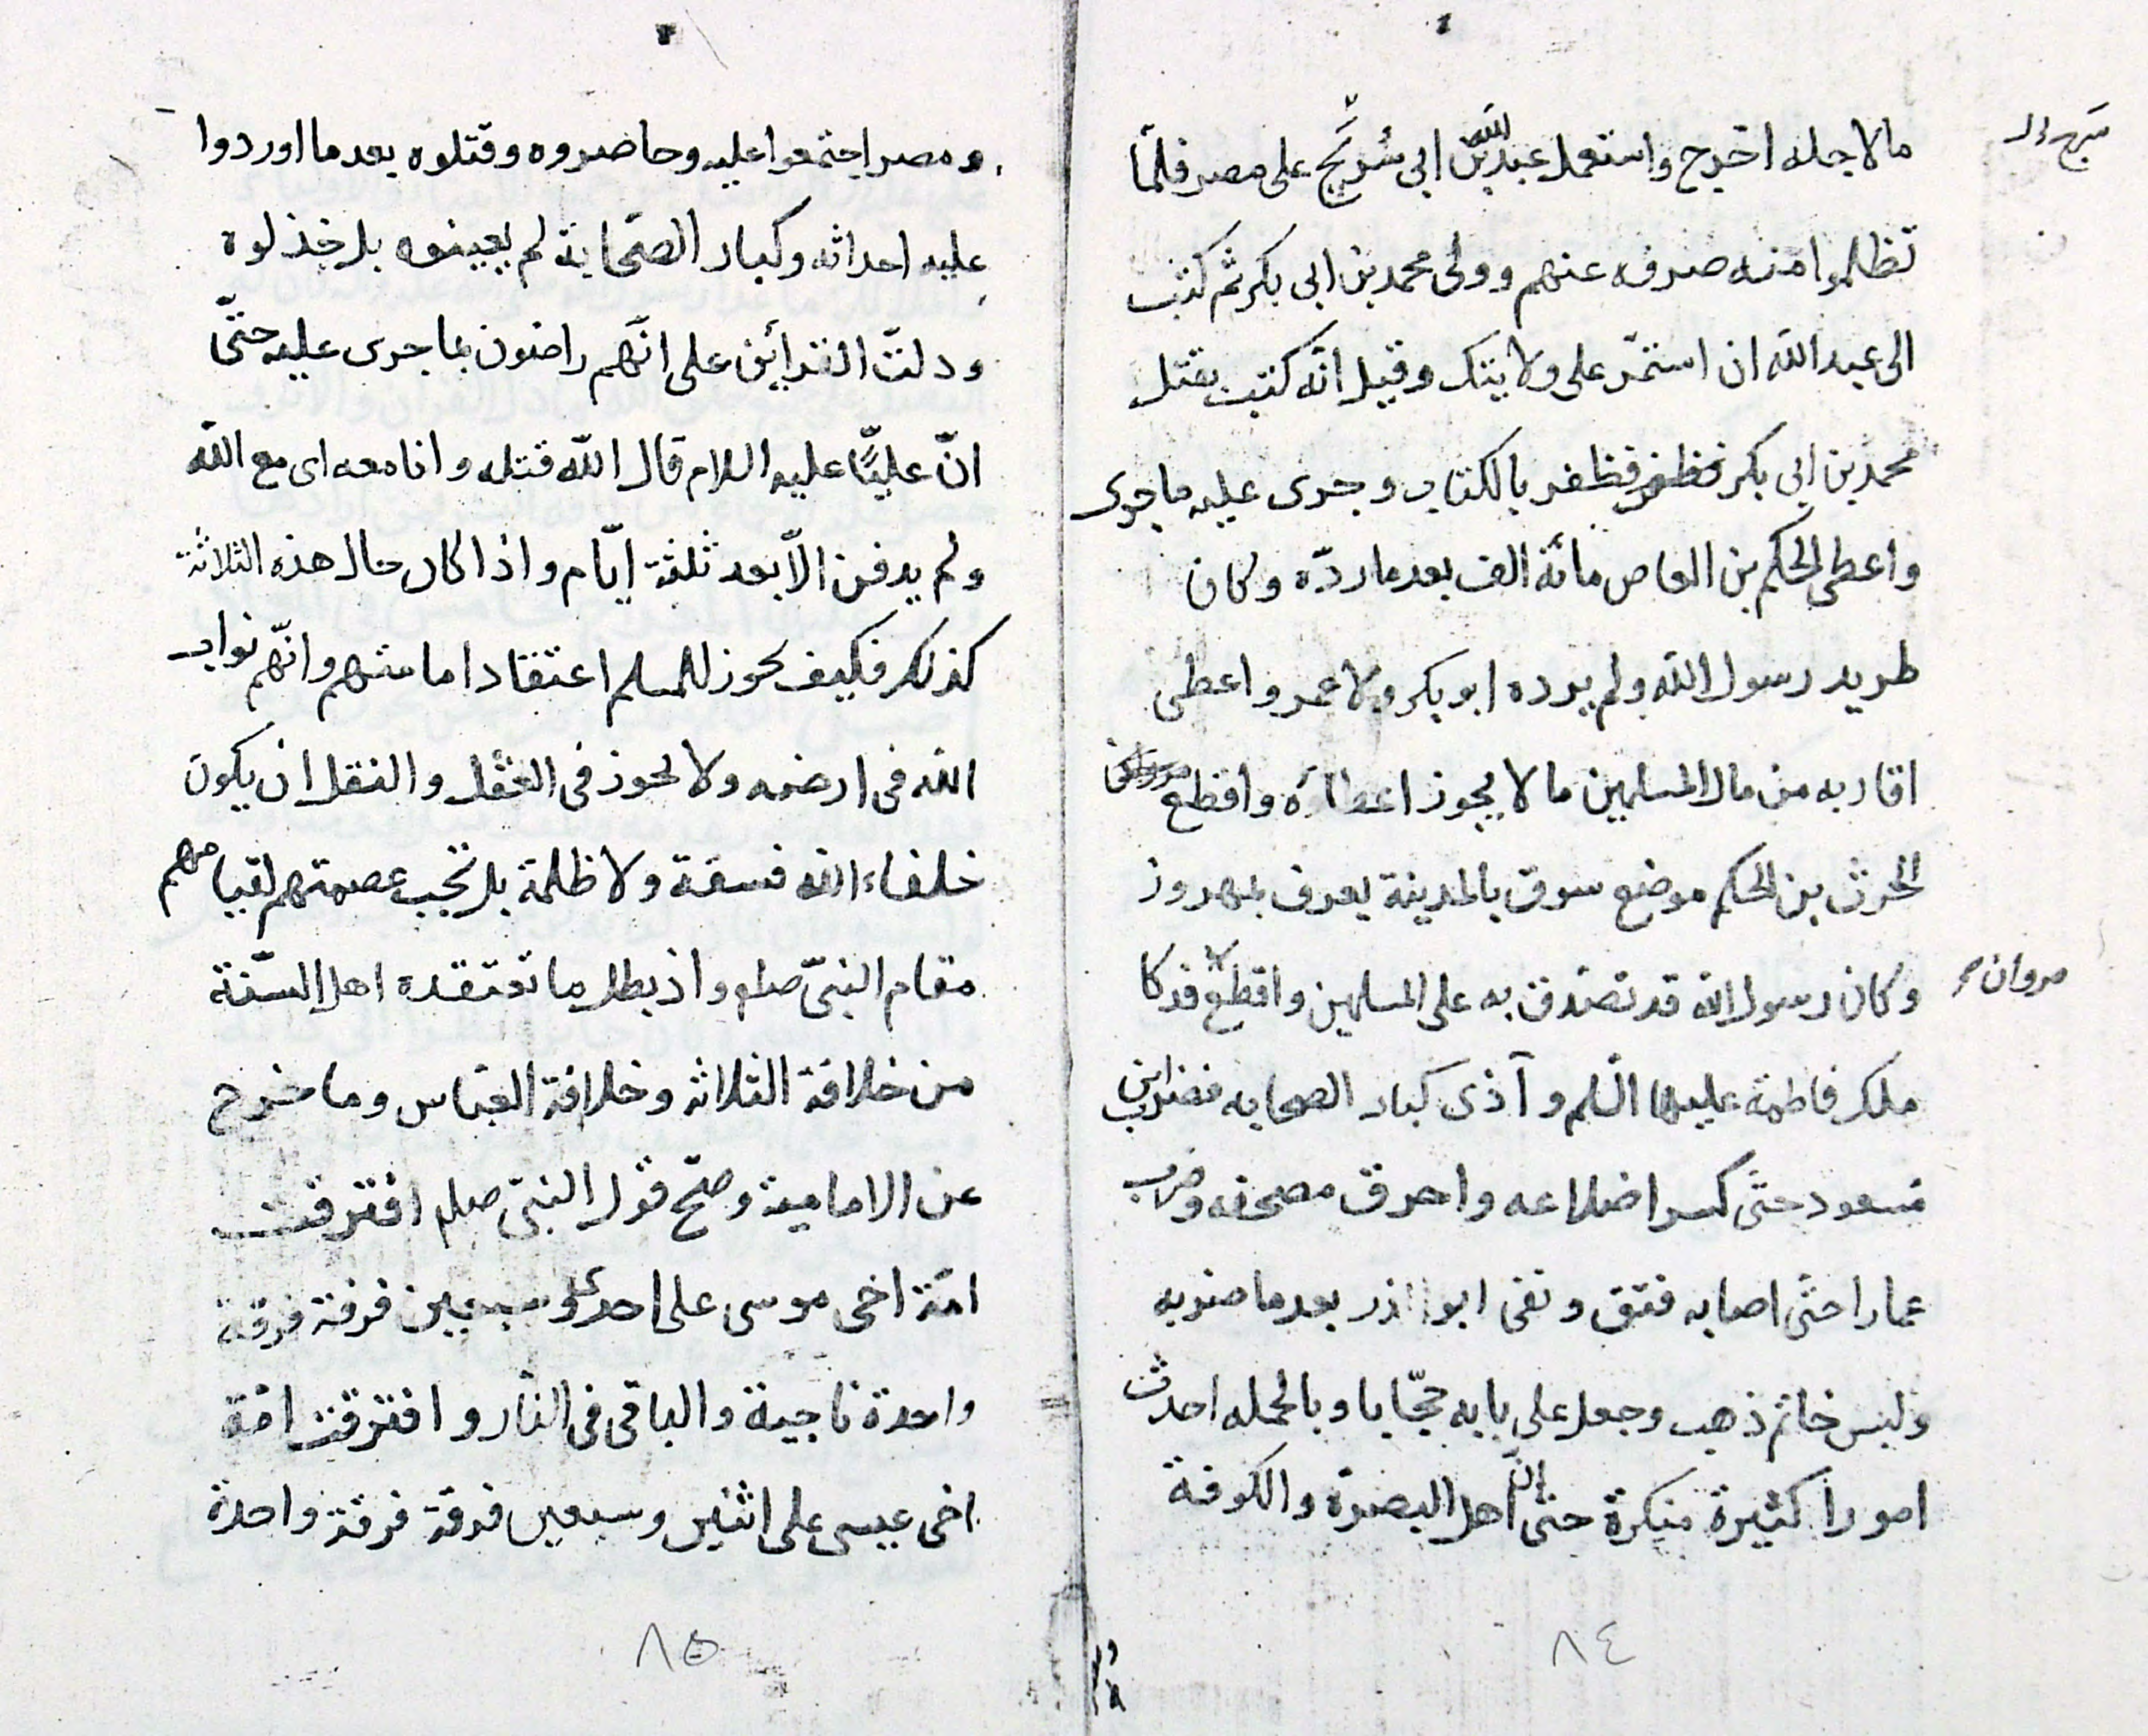 مالاجله اخرج واستعمل عبد الله بن ابى سُرَيج على مصر فلمّا
تظلموا منه صرفه عنهم وولى محمد بن ابى بكر ثم كتب
الى عبد الله ان استمرّ على ولايتك وقيل انّه كتب بقتل
محمد بن ابى بكر فظفر بالكتاب وجرى عليه ماجرى
واعطى الحكم بن العاص مائة الف بعد ما ردّه وكان
طريد رسول الله ولم يرده ابو بكر ولا عمر واعطى
اقاربه من مال المسلمين ما لا يجوز اعطاؤه واقطع
الحرث بن الحكم موضع سوق بالمدينة يعرف بمهروز
وكان رسول الله قد تصدق به على المسلمين واقطع فدكا
مروان
ملك فاطمة عليها السّلم وآذى كبار الصحابه فضرب ابن
مسعود حتى كسر اضلاعه واحرق مصحفه وضرب
عمارا حتى اصابه فتق ونفى ابو اذر بعد ما ضربه
ولبس خاتم ذهب وجعل على بابه حجّابا وبالجمله احدث
امورا كثيرة منكرة حتى انّ اهل البصرة والكوفة
٨٤
ومصر اجتمعوا عليه وحاصروه وقتلوه بعد ما اوردوا
عليه احداثه وكبار الصّحابة لم يعينوه بل خذلوه
ودلت القرائن على انّهم راضون بما جرى عليه حتّى
انّ عليًّا عليه السلام قال الله قتله وانا معه اى مع الله
ولم يدفن الّا بعد ثلثة ايّام واذا كان حال هذه الثلاثة
كذلك فكيف يجوز للمسلم اعتقاد امامتهم وانّهم نواب
الله فى ارضه ولا يجوز فى العقل والنقل ان يكون
خلفاء الله فسقة ولا ظلمة بل تجب عصمتهم لقيامهم
مقام النبىّ صلم واذ بطل ما تعتقده اهل السّنة
من خلافة الثلاثه وخلافة العبّاس وما خرج
عن الامامية وصحّ قول النبىّ صلم افترقت
امّة اخى موسى على احدى وسبعين فرقة فرقة
واحدة ناجية والباقى فى النّار وافترقت امّة
اخى عيسى على اثنين وسبعين فرقة فرقة واحدة
٨٥